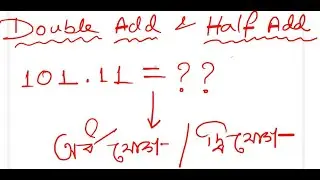 Double Add & Half Add
101.11 = ??
অর্ধযোজক / দ্বিযোজক